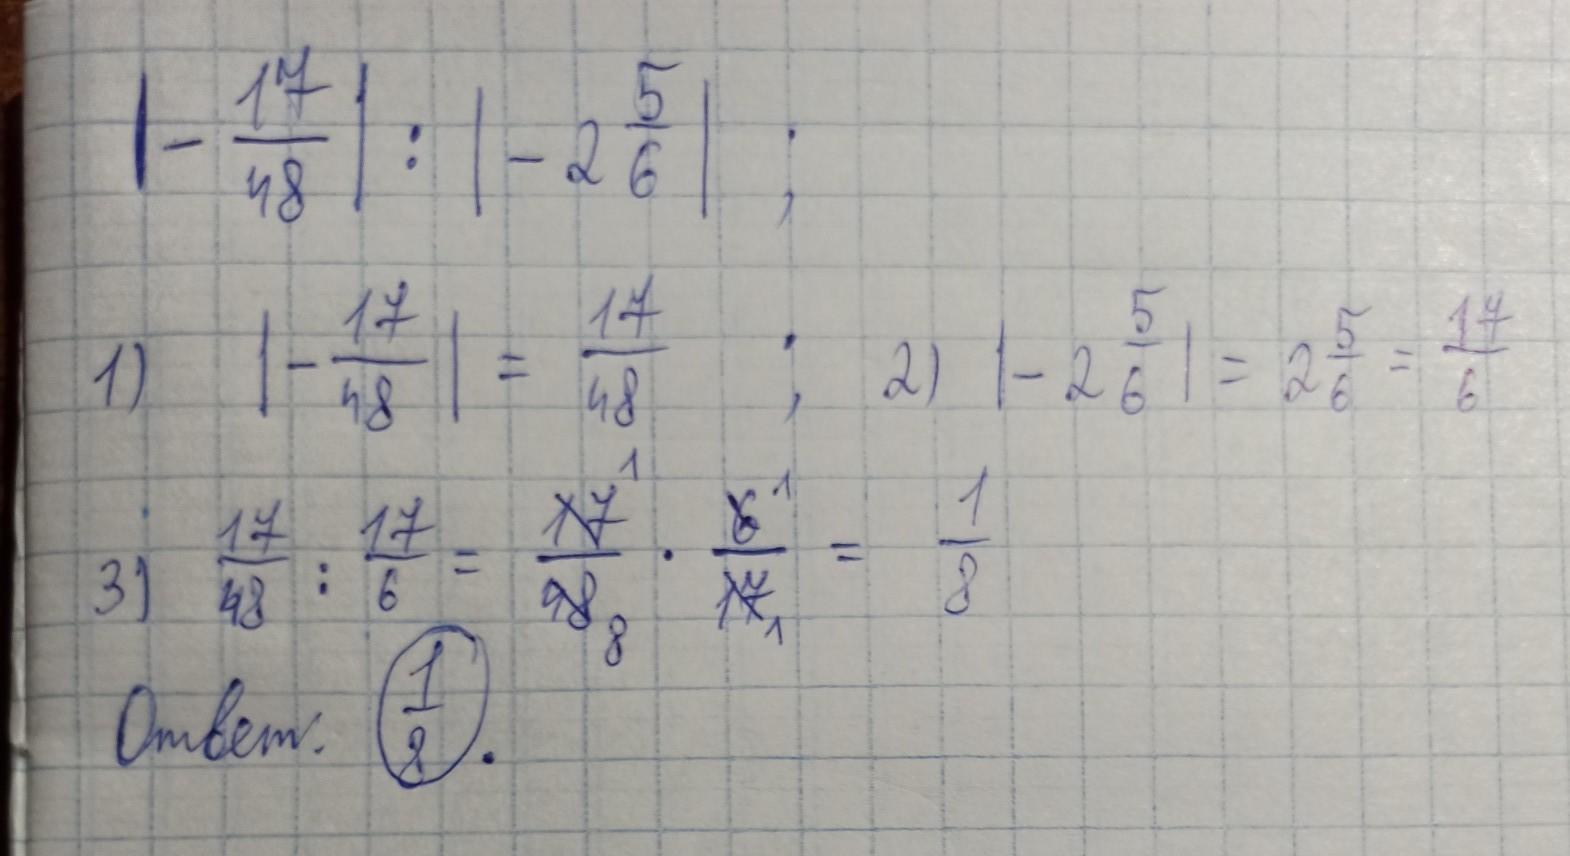 |- 17/48| : |-2 5/6| ;
1) |- 17/48| = 17/48 ; 2) |-2 5/6| = 2 5/6 = 17/6
3) 17/48 : 17/6 = 17¹/48₈ · 6¹/17₁ = 1/8
Ответ: 1/8.